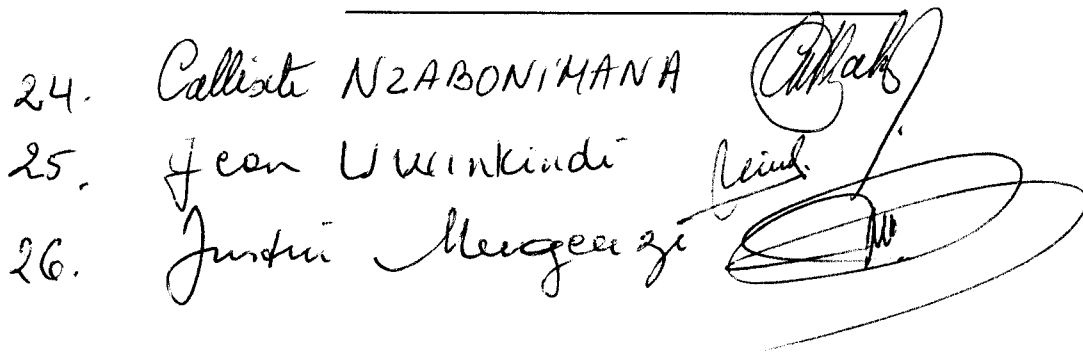 24. Callixte NZABONIMANA
25. Jean Uwinkindi
26. Justin Mugenzi